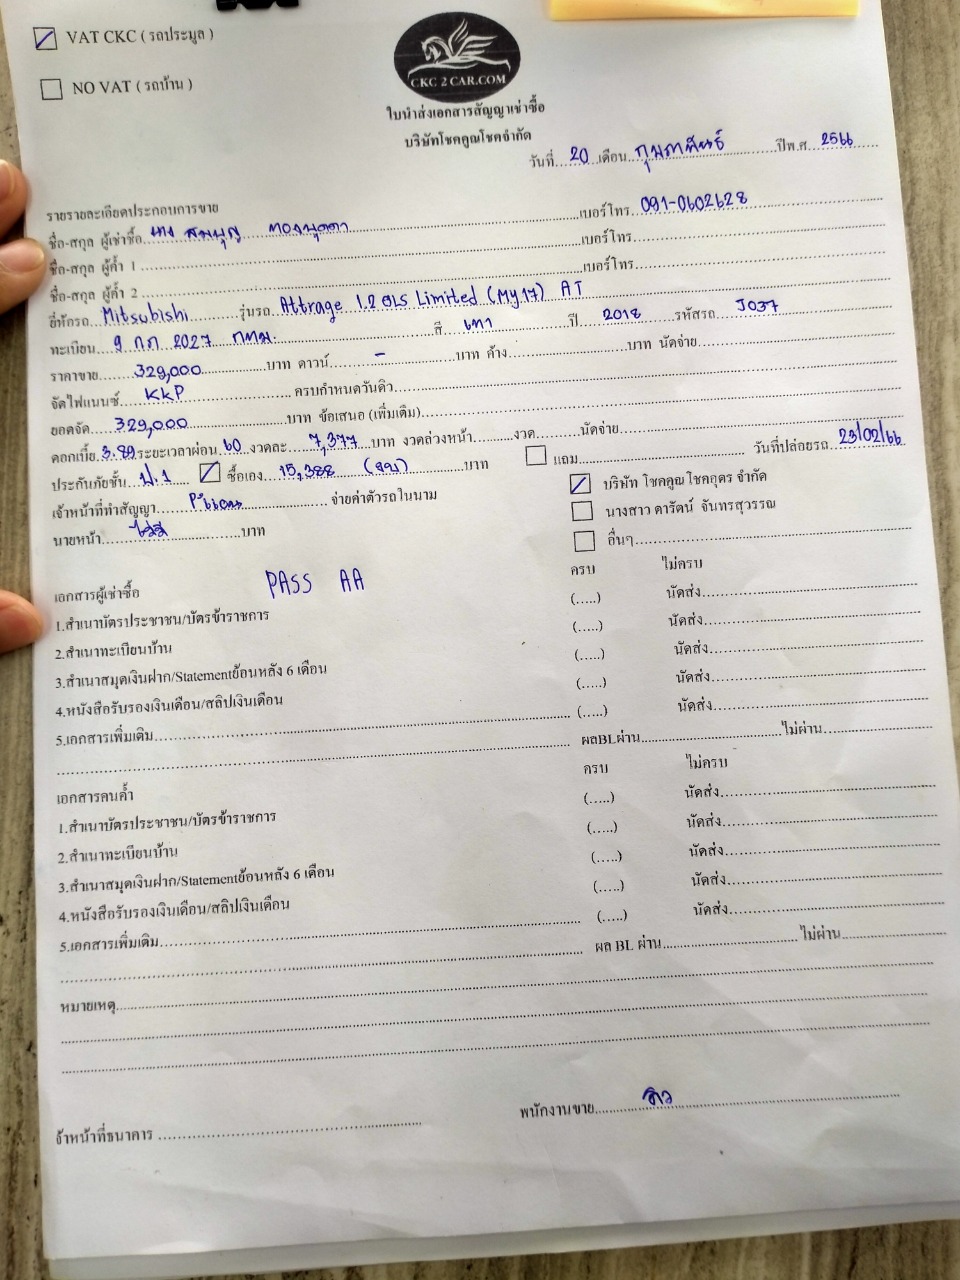 VAT CKC ( รถประมูล )
NO VAT ( รถบ้าน )
CKC 2 CAR.COM
ใบนำส่งเอกสารสัญญาเช่าซื้อ
บริษัทโชคคูณโชคจำกัด
วันที่ 20 เดือน กุมภาพันธ์ ปีพ.ศ. 2566
รายรายละเอียดประกอบการขาย
ชื่อ-สกุล ผู้เช่าซื้อ นาง สมบุญ ทองบุดดา เบอร์โทร 091-0602628
ชื่อ-สกุล ผู้ค้ำ 1 เบอร์โทร
ชื่อ-สกุล ผู้ค้ำ 2 เบอร์โทร
ยี่ห้อรถ Mitsubishi รุ่นรถ Attrage 1.2 GLS Limited (My17) AT
ทะเบียน 9 กภ 2027 กทม. สี เทา ปี 2018 รหัสรถ J037
ราคาขาย 329,000 บาท ดาวน์ - บาท ค้าง บาท นัดจ่าย
จัดไฟแนนซ์ KKP ครบกำหนดวันคิว
ยอดจัด 329,000 บาท ข้อเสนอ (เพิ่มเติม)
ดอกเบี้ย 3.89 ระยะเวลาผ่อน 60 งวดละ 7,377 บาท งวดล่วงหน้า งวด นัดจ่าย
ประกันภัยชั้น ป.1 ซื้อเอง 15,388 (จบ) บาท แถม วันที่ปล่อยรถ 23/02/66
เจ้าหน้าที่ทำสัญญา จ่ายค่าตัวรถในนาม บริษัท โชคคูณโชคอุดร จำกัด
นายหน้า ไม่มี บาท นางสาว ดารัตน์ จันทรสุวรรณ
อื่นๆ
เอกสารผู้เช่าซื้อ PASS AA ครบ ไม่ครบ
1.สำเนาบัตรประชาชน/บัตรข้าราชการ (.....) นัดส่ง
2.สำเนาทะเบียนบ้าน (.....) นัดส่ง
3.สำเนาสมุดเงินฝาก/Statementย้อนหลัง 6 เดือน (.....) นัดส่ง
4.หนังสือรับรองเงินเดือน/สลิปเงินเดือน (.....) นัดส่ง
5.เอกสารเพิ่มเติม (.....) นัดส่ง
ผลBLผ่าน ไม่ผ่าน
เอกสารคนค้ำ ครบ ไม่ครบ
1.สำเนาบัตรประชาชน/บัตรข้าราชการ (.....) นัดส่ง
2.สำเนาทะเบียนบ้าน (.....) นัดส่ง
3.สำเนาสมุดเงินฝาก/Statementย้อนหลัง 6 เดือน (.....) นัดส่ง
4.หนังสือรับรองเงินเดือน/สลิปเงินเดือน (.....) นัดส่ง
5.เอกสารเพิ่มเติม (.....) นัดส่ง
ผล BL ผ่าน ไม่ผ่าน
หมายเหตุ
พนักงานขาย คิว
จ้าหน้าที่ธนาคาร